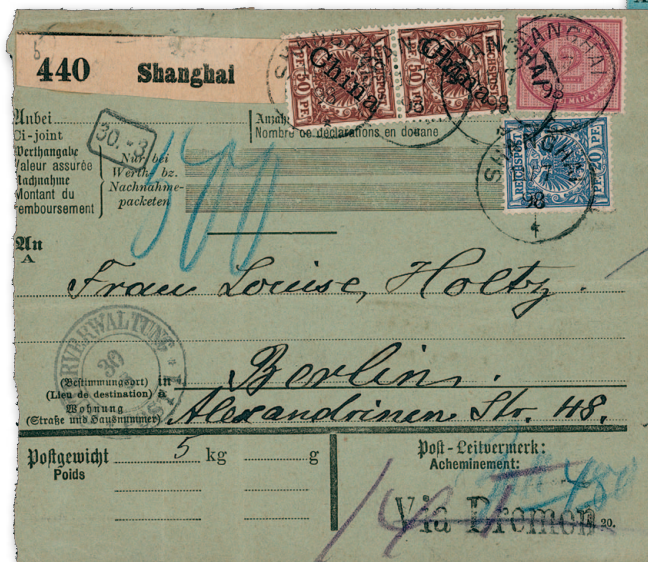 440 Shanghai
50 PF. 50 PF.
China China
REICHSPOST
20 PF.
SHANGHAI
98
Anbei
Ci-joint
Werthangabe
Valeur assurée
Nachnahme
Montant du
remboursement
30. -3
Nur bei
Werth- bz.
Nachnahme-
packeten
Anzah
Nombre de déclarations en douane
An
A
Frau Louise Holtz.
(Bestimmungsort) in Berlin.
(Lieu de destination) à
Wohnung
(Straße und Hausnummer)
Alexandrinen Str. 48.
30
Postgewicht 5 kg g
Poids
Post-Leitvermerk:
Acheminement:
Via Bremen
20.